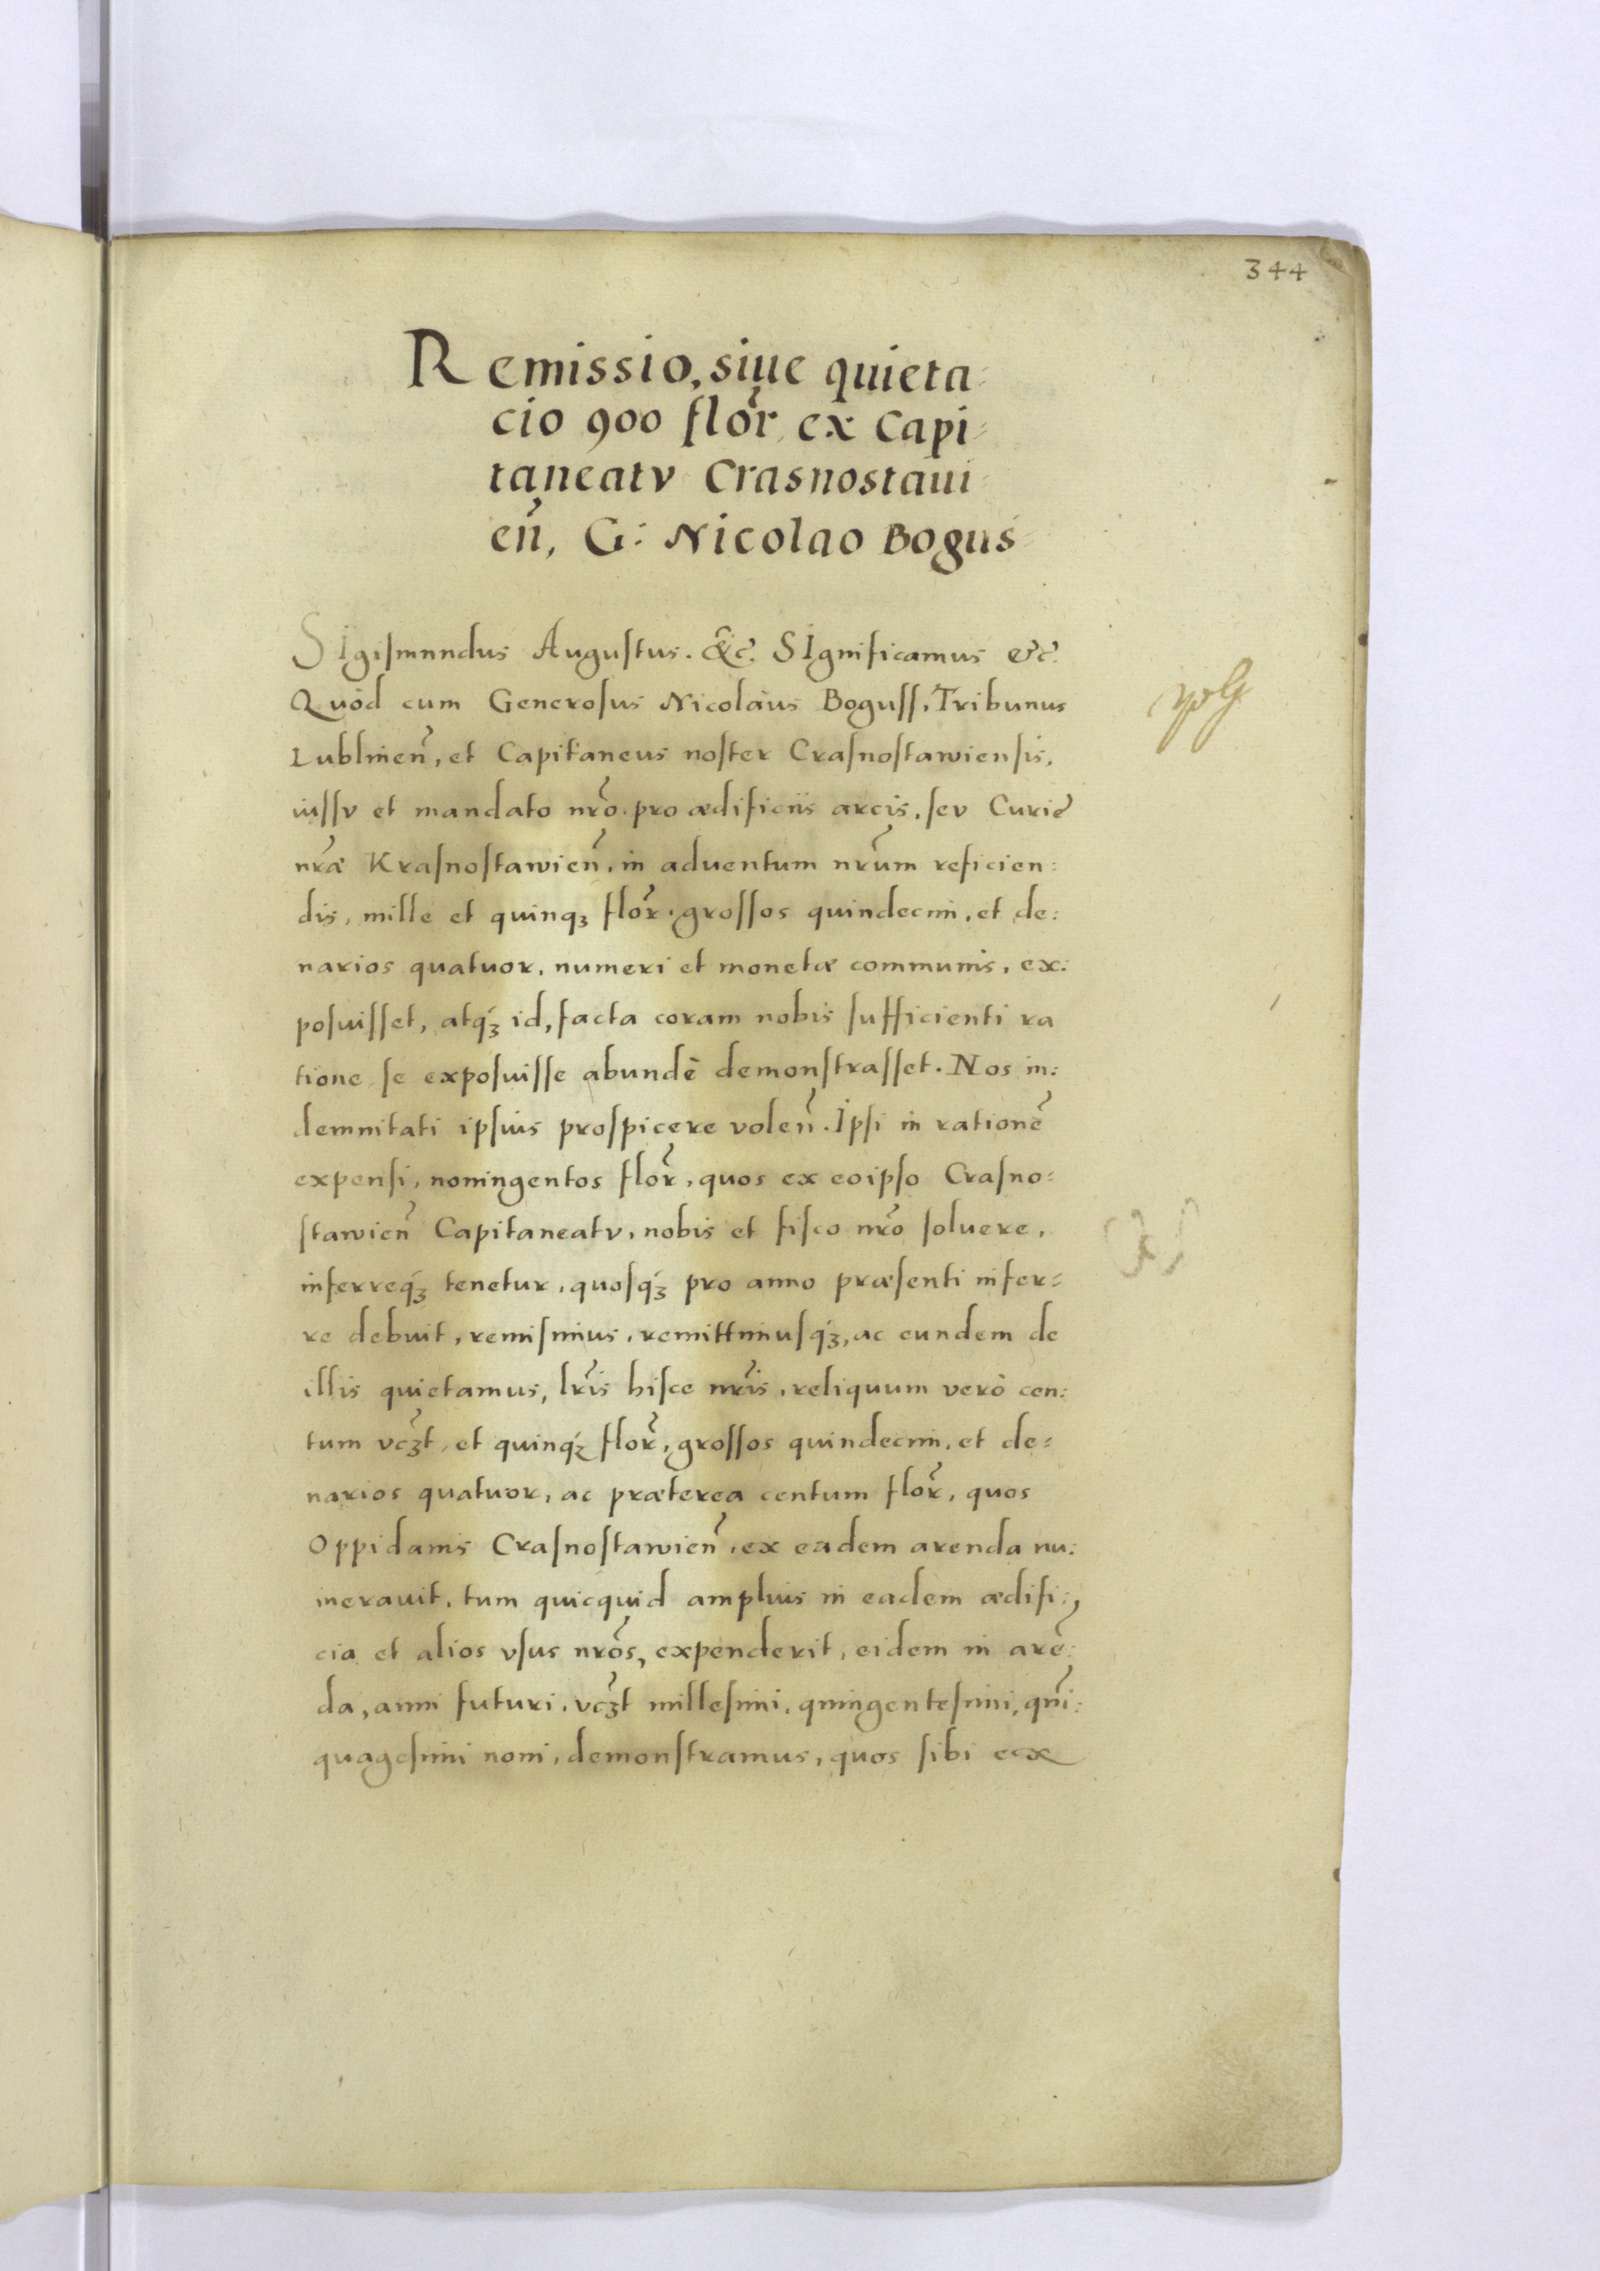 344
Remissio, siue quieta=
cio 900 flor̃ ex Capi=
taneatv Crasnostaui=
eñ, G: Nicolao Bogus
SIgiſmundus Auguſtus. &c̃. SIgnificamus &c̃.
Quòd cum Generoſus Nicolàus Boguſſ, Tribunus
Lublineñ, et Capitaneus noſter Craſnoſtawienſis,
iuſſv et mandato nr̃o. pro ædificiis arcis, ſev Curię
nr̃æ Kraſnoſtawieñ, in aduentum nr̃um reficien:
dis, mille et quinqꝫ flor̃, groſſos quindecim, et de:
narios quatuor, numeri et monetæ communis, ex:
poſuiſſet, atqꝫ id, facta coram nobis ſufficienti ra
tione ſe expoſuiſſe abundè demonſtraſſet. Nos in:
demnitati ipſius proſpicere voleñ. Ipſi in rationẽ
expenſi, noningentos flor̃, quos ex eoipſo Craſno:
ſtawieñ Capitaneatv, nobis et fiſco nr̃o ſoluere,
inferreqꝫ tenetur, quoſqꝫ pro anno præſenti infer=
re debuit, remiſimus, remittimuſqꝫ, ac eundem de
illis quietamus, lr̃is hiſce nr̃is, reliquum verò cen:
tum vcꝫt, et quinqꝫ flor̃, groſſos quindecim, et de=
narios quatuor, ac præterea centum flor̃, quos
Oppidanis Craſnoſtawieñ, ex eadem arenda nu:
merauit, tum quicquid amplius in eadem ædifi:
cia et alios vſus nr̃os, expenderit, eidem in arẽ:
da, anni futuri, vcꝫt milleſimi, quingenteſimi, qui͂:
quageſimi noni, demonſtramus, quos ſibi ex